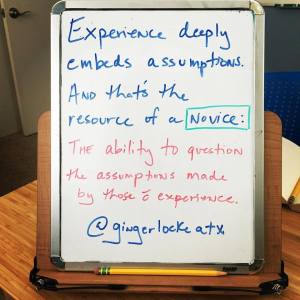 Experience deeply
embeds assumptions.
And that's the
resource of a NOVICE:
The ability to question
the assumptions made
by those c̄ experience.
@gingerlockeatx